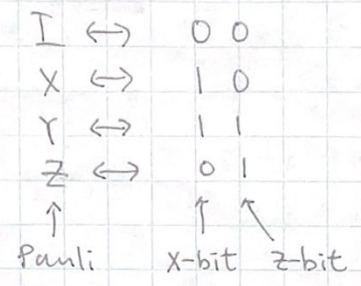 I ↔ 0 0
X ↔ 1 0
Y ↔ 1 1
Z ↔ 0 1
↑ ↑ ↖
Pauli X-bit Z-bit